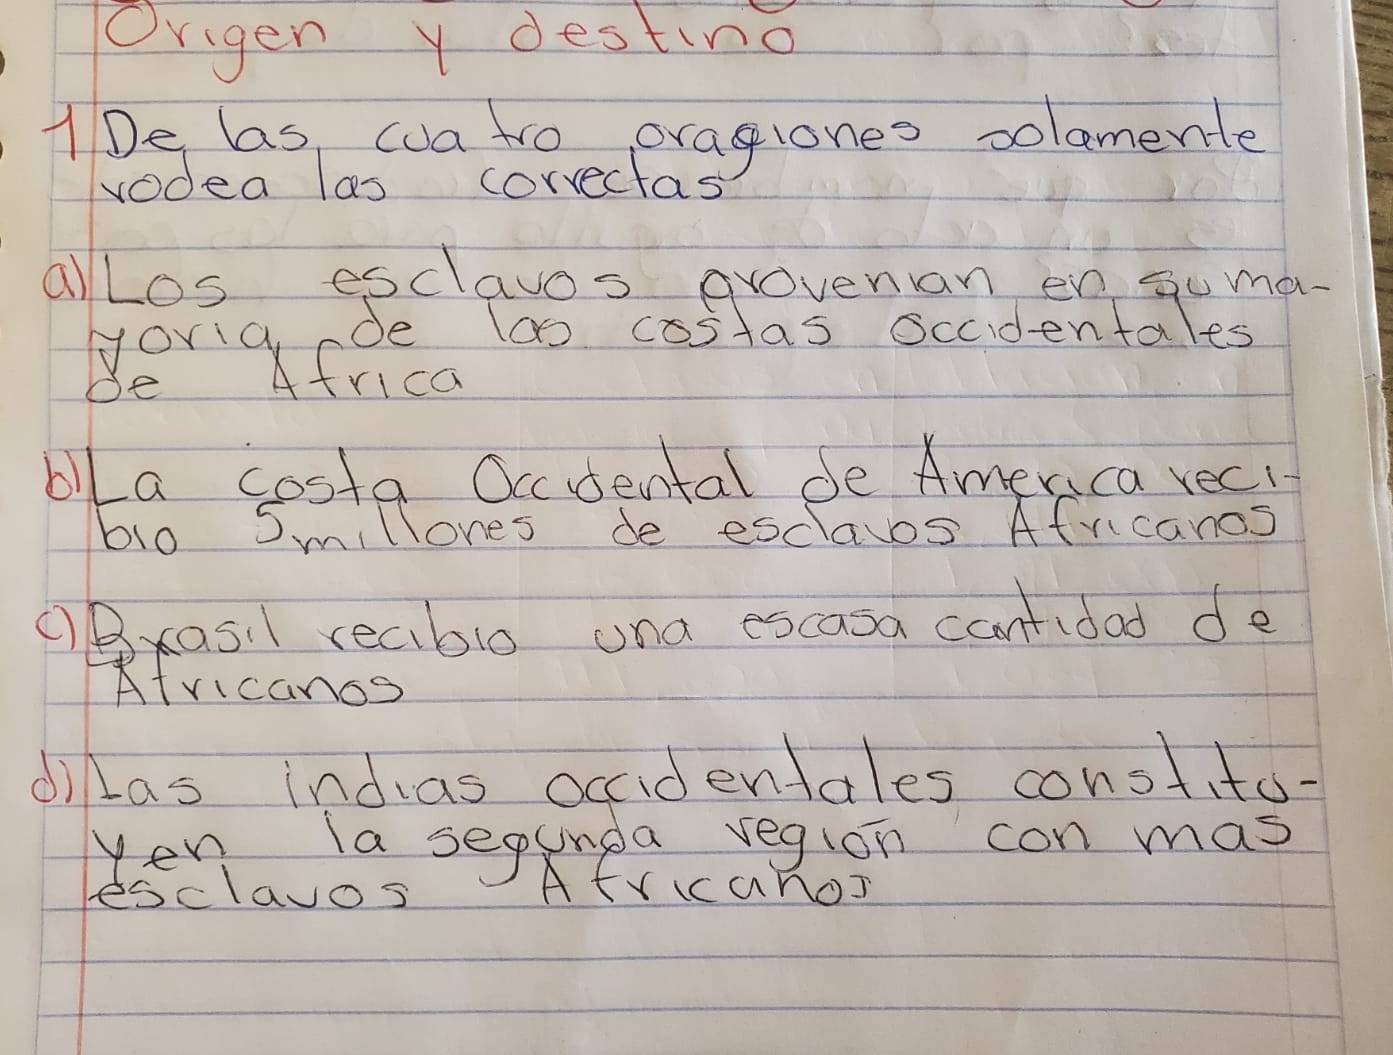 Origen y destino
1 De las cuatro oragiones solamente
rodea las correctas
a) Los esclavos provenian en su ma-
yoria de las costas occidentales
de Africa
b) La costa Occidental de America reci-
bio 5 millones de esclavos Africanos
c) Brasil recibio una escasa cantidad de
Africanos
d) Las indias occidentales constitu-
yen la segunda región con mas
esclavos Africanos